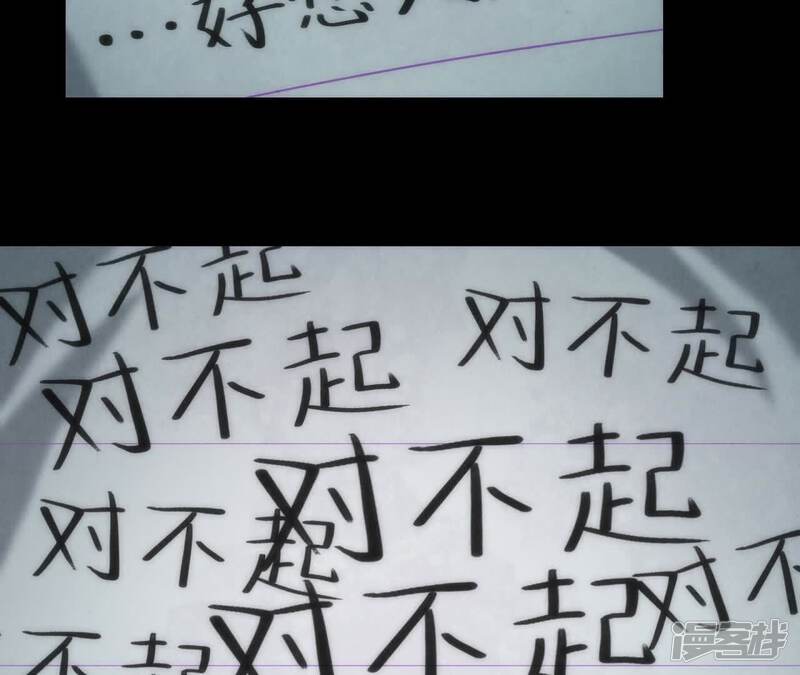 …好想
对不起
对不起
对不起
对不起
对不起
对不起
对不
不起
对不起
漫客栈